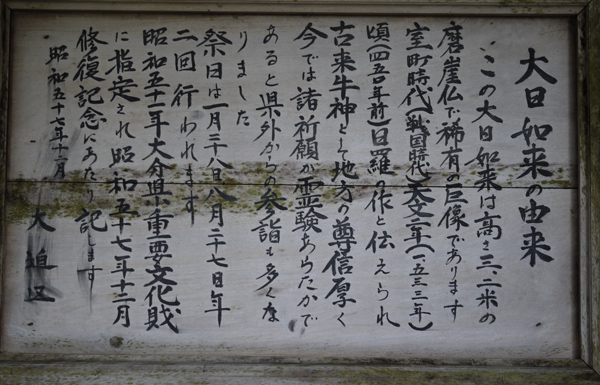 大日如来の由来
この大日如来は高さ三、二米の
磨崖仏で稀有の巨像であります
室町時代(戦国時代)天文二年(一、五三三年)
頃(四五〇年前)日羅の作と伝えられ
古来牛神として地方の尊信厚く
今では諸祈願が霊験あらたかで
あると県外からの参詣も多くな
りました
祭日は一月二十八日八月二十七日年
二回行われます
昭和五十一年大分県重要文化財
に指定され昭和五十七年十二月
修復記念にあたり記します
昭和五十七年十二月
大迫区